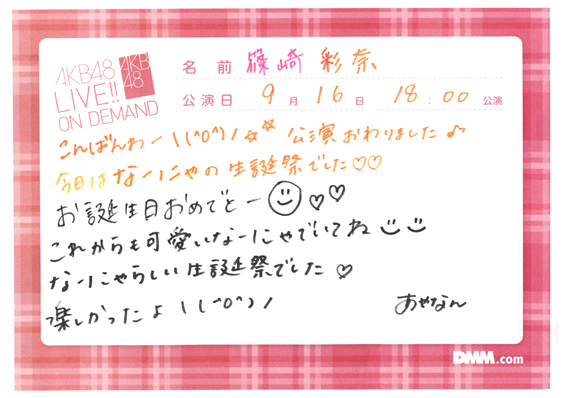 AKB48
LIVE!!
ON DEMAND
AKB
48
名前 篠崎 彩奈
公演日 9月16日 18:00公演
こんばんわー\(^o^)/☆☆ 公演おわりました♪
今日はなーにゃの生誕祭でした♡♡
お誕生日おめでとー☺♡♡
これからも可愛いなーにゃでいてね
なーにゃらしい生誕祭でした♡
楽しかったよ\(^o^)/
あやなん
DMM.com